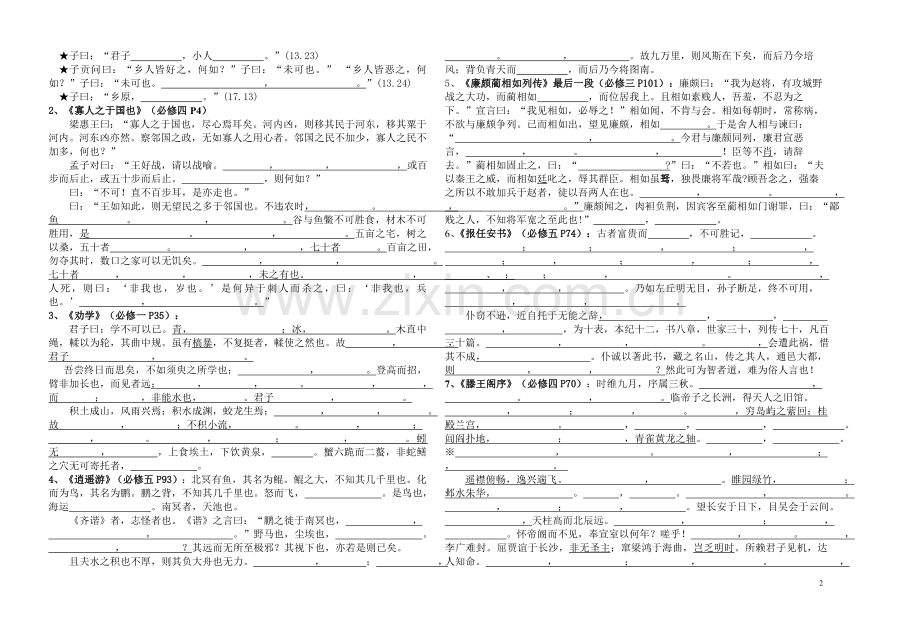 ★子曰：“君子__________，小人__________。”(13.23)
★子贡问曰：“乡人皆好之，何如？”子曰：“未可也。” “乡人皆恶之，何
如？”子曰：“未可也。__________，__________。”(13.24)
★子曰：“乡原，__________。”(17.13)
2、《寡人之于国也》（必修四 P4）
梁惠王曰：“寡人之于国也，尽心焉耳矣。河内凶，则移其民于河东，移其粟于
河内。河东凶亦然。察邻国之政，无如寡人之用心者。邻国之民不加少，寡人之民不
加多，何也？”
孟子对曰：“王好战，请以战喻。__________，__________，__________，或百
步而后止，或五十步而后止。__________，则何如？”
曰：“不可！直不百步耳，是亦走也。”
曰：“王如知此，则无望民之多于邻国也。不违农时，__________。__________，
鱼__________。__________，__________。谷与鱼鳖不可胜食，材木不可
胜用，是__________。__________，__________。五亩之宅，树之
以桑，五十者__________。__________，__________，七十者__________。百亩之田，
勿夺其时，数口之家可以无饥矣。__________，__________，__________。
七十者__________，__________，__________，未之有也。__________，__________、__________；
人死，则曰：‘非我也，岁也。’是何异于刺人而杀之，曰：‘非我也，兵
也。’__________，__________。”
3、《劝学》（必修一 P35）：
君子曰：学不可以已。青，__________；冰，__________。木直中
绳，輮以为轮，其曲中规。虽有槁暴，不复挺者，輮使之然也。故__________，__________，
君子__________，__________。
吾尝终日而思矣，不如须臾之所学也；__________，__________。登高而招，
臂非加长也，而见者远；__________，__________，__________。__________，__________，
而__________；__________，非能水也，__________。君子__________，__________。
积土成山，风雨兴焉；积水成渊，蛟龙生焉；__________，__________，__________。
故__________，__________；不积小流，__________。__________，__________；
__________，__________。__________，__________；__________，__________。蚓
无__________，__________，上食埃土，下饮黄泉，__________。蟹六跪而二螯，非蛇鳝
之穴无可寄托者，__________。
4、《逍遥游》（必修五 P93）：北冥有鱼，其名为鲲。鲲之大，不知其几千里也。化
而为鸟，其名为鹏。鹏之背，不知其几千里也。怒而飞，__________。是鸟也，
海运__________。南冥者，天池也。
《齐谐》者，志怪者也。《谐》之言曰：“鹏之徙于南冥也，__________，
__________，__________。”野马也，尘埃也，__________。__________，
__________，__________？其远而无所至极邪？其视下也，亦若是则已矣。
且夫水之积也不厚，则其负大舟也无力。__________，__________，
__________。__________，__________。故九万里，则风斯在下矣，而后乃今培
风；背负青天而__________，而后乃今将图南。
5、《廉颇蔺相如列传》最后一段（必修三 P101）：廉颇曰：“我为赵将，有攻城野
战之大功，而蔺相如__________，而位居我上。且相如素贱人，吾羞，不忍为之
下。”宣言曰：“我见相如，必辱之！”相如闻，不肯与会。相如每朝时，常称病，
不欲与廉颇争列。已而相如出，望见廉颇，相如__________。于是舍人相与谏曰：
“__________，__________。今君与廉颇同列，廉君宣恶
言，__________，__________。__________，__________！臣等不肖，请辞
去。”蔺相如固止之，曰：“__________？”曰：“不若也。”相如曰：“夫
以秦王之威，而相如廷叱之，辱其群臣。相如虽驽，独畏廉将军哉？顾吾念之，强秦
之所以不敢加兵于赵者，徒以吾两人在也。__________，__________。__________，
__________，__________。”廉颇闻之，肉袒负荆，因宾客至蔺相如门谢罪，曰：“鄙
贱之人，不知将军宽之至此也！”__________，__________。
6、《报任安书》（必修五 P74）：古者富贵而__________，不可胜记，__________。
__________；__________，__________；__________，__________；
__________，__________；__________，__________；__________，__________；
__________；__________，__________。__________，
__________，__________。乃如左丘明无目，孙子断足，终不可用，
__________，__________。
仆窃不逊，近自托于无能之辞，__________，__________，
__________，__________，为十表，本纪十二，书八章，世家三十，列传七十，凡百
三十篇。__________，__________，__________。__________，会遭此祸，惜
其不成，__________。仆诚以著此书，藏之名山，传之其人，通邑大都，
则__________，__________，__________？然此可为智者道，难为俗人言也！
7、《滕王阁序》（必修四 P70）：时维九月，序属三秋。__________，
__________。__________，__________。临帝子之长洲，得天人之旧馆。
__________，__________；__________，__________。__________，穷岛屿之萦回；桂
殿兰宫，__________。__________，__________；__________，__________。
闾阎扑地，__________；__________，青雀黄龙之轴。__________，__________。
※__________，__________。__________，__________；__________，__________。
遥襟俯畅，逸兴遄飞。__________，__________。睢园绿竹，__________；
邺水朱华，__________。__________，__________。__________，__________。
__________，__________；__________，__________。望长安于日下，目吴会于云间。
__________，天柱高而北辰远。__________，__________？__________，
__________。怀帝阍而不见，奉宣室以何年？嗟乎！__________，__________。__________，
李广难封。屈贾谊于长沙，非无圣主；窜梁鸿于海曲，岂乏明时。所赖君子见机，达
人知命。__________，__________；__________，__________。__________，
www.zixin.com.cn
2